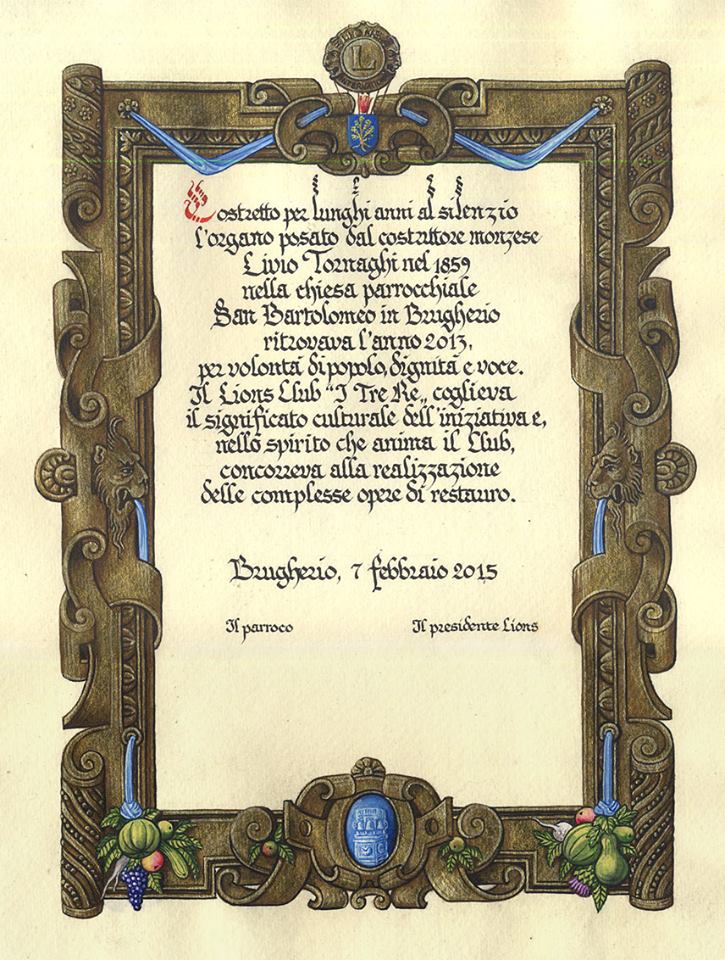 L
Costretto per lunghi anni al silenzio
l'organo posato dal costruttore monzese
Livio Tornaghi nel 1859
nella chiesa parrocchiale
San Bartolomeo in Brugherio
ritrovava l'anno 2013,
per volontà di popolo, dignità e voce.
Il Lions Club "I Tre Re„ coglieva
il significato culturale dell'iniziativa e,
nello spirito che anima il Club,
concorreva alla realizzazione
delle complesse opere di restauro.
Brugherio, 7 febbraio 2015
Il parroco Il presidente Lions